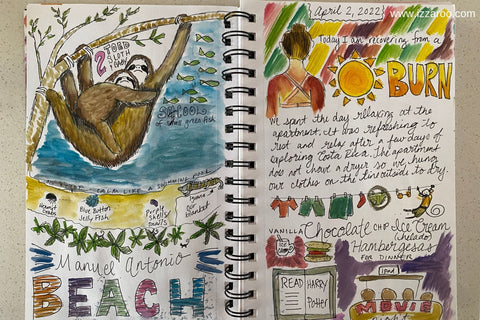 2 TOED
SLOTH
& BABY
SCHOOL
of some green fish
CALM LIKE A SWIMMING POOL
Hermit
Crabs
Blue Button
Jelly Fish
Pretty
Shells/
Snails
Manuel Antonio
BEACH
www.izzaroo.com
April 2, 2022
Today I am recovering from a
SUN BURN
We spent the day relaxing at the
apartment. It was refreshing to
rest and relax after a few days of
exploring Costa Rica. The apartment
does not have a dryer so we hung
our clothes on the line outside to dry.
VANILLA Chocolate CHIP Ice Cream
(helado)
ICE
CREAM
Hambergesas
FOR DINNER
READ HARRY
Potter
iPad
MOVIE